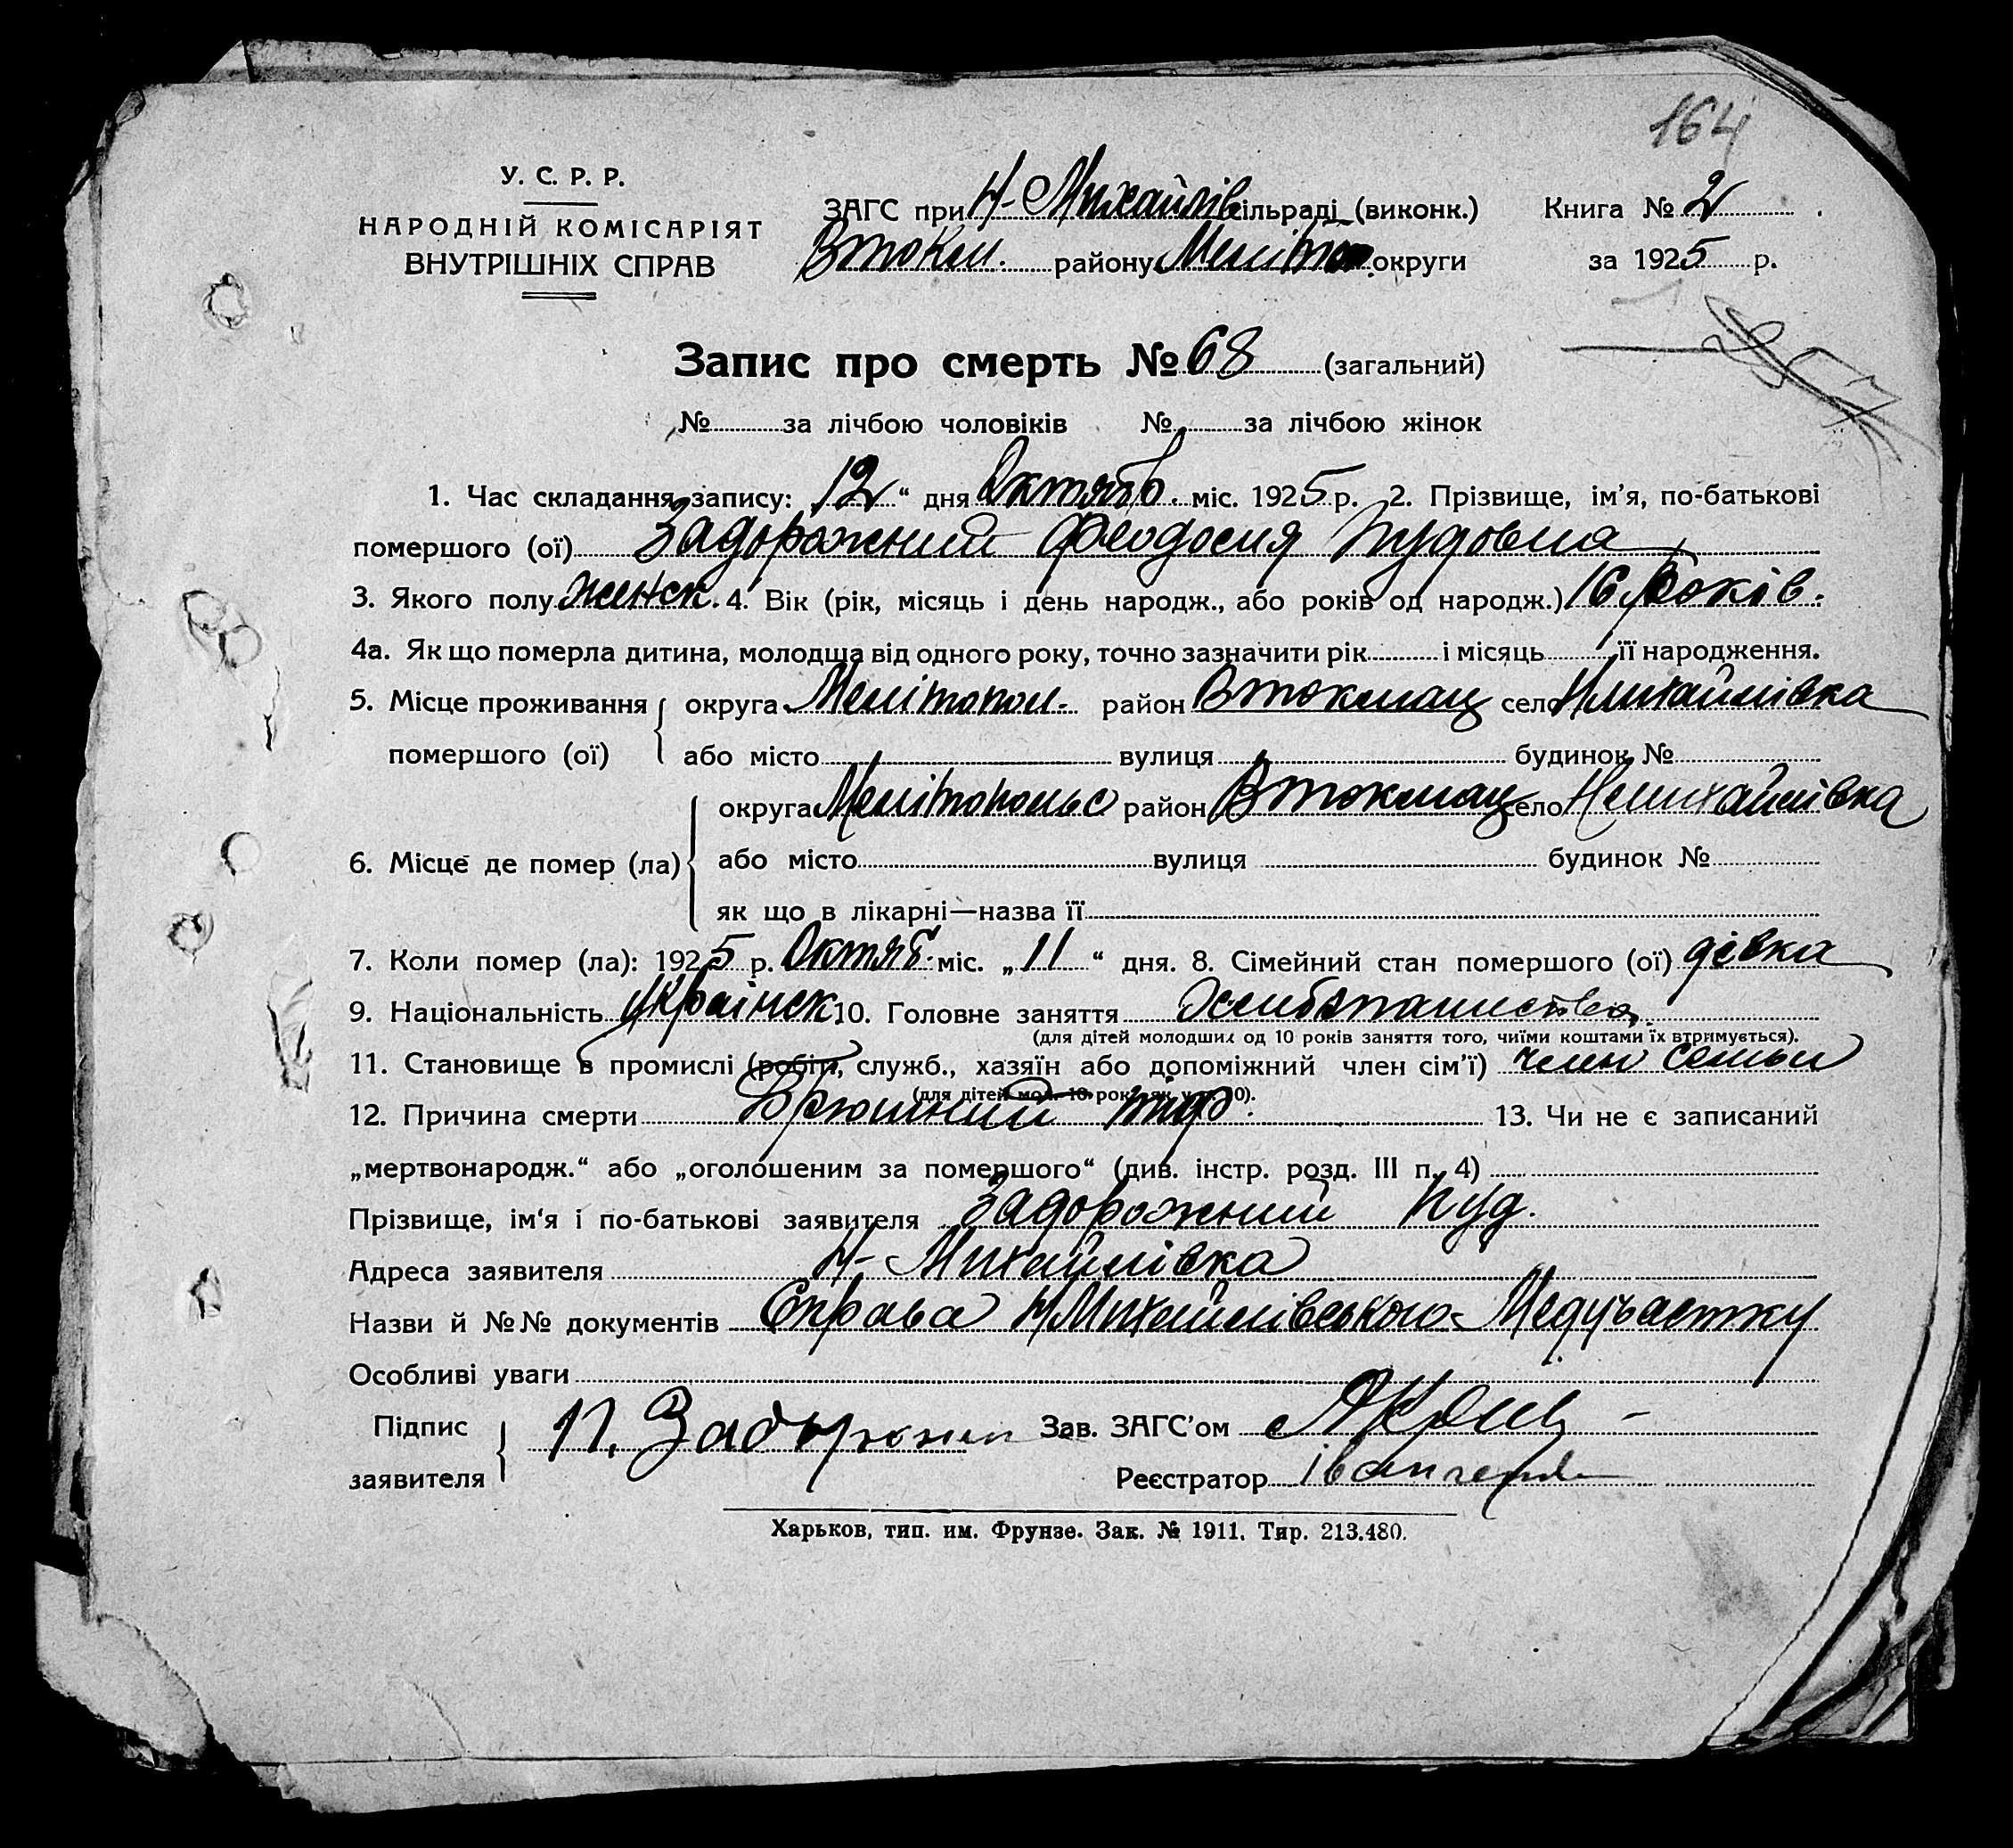 164
У. С. Р. Р.
НАРОДНІЙ КОМІСАРІЯТ
ВНУТРІШНІХ СПРАВ
ЗАГС при Н-Михайлів сільраді (виконк.) Книга № 2
Втокм. району Меліто. округи за 1925 р.
Запис про смерть № 68 (загальний)
№ за лічбою чоловіків № за лічбою жінок
1. Час складання запису: 12 “ дня Октяб. міс. 1925 р. 2. Прізвище, ім’я, по-батькові
помершого (ої) Задорожний Феодосия Пудовна
3. Якого полу женск. 4. Вік (рік, місяць і день народж., або років од народж.) 16 Років.
4а. Як що померла дитина, молодша від одного року, точно зазначити рік і місяць її народження.
5. Місце проживання округа Мелітопол. район Втокмац село Нмихайлівка
помершого (ої) або місто вулиця будинок №
округа Мелітопольс район Втокмац село Нмихайлівка
6. Місце де помер (ла) або місто вулиця будинок №
як що в лікарні—назва її
7. Коли помер (ла): 1925 р. Октяб. міс. „ 11 “ дня. 8. Сімейний стан помершого (ої) дівка
9. Національність Українск. 10. Головне заняття Хлибопашество
(для дітей молодших од 10 років заняття того, чиїми коштами їх втримується).
11. Становище в промислі (робіт, служб., хазяїн або допоміжний член сім’ї) член семьи
(для дітей мол. 10 рок. як у п. 10).
12. Причина смерти Брюшний тіф. 13. Чи не є записаний
„мертвонародж.“ або „оголошеним за помершого“ (див. інстр. розд. III п. 4)
Прізвище, ім‘я і по-батькові заявителя Задорожний Пуд.
Адреса заявителя Н-Михайлівка
Назви й №№ документів Справа Н Михайлівського Медучастку
Особливі уваги
Підпис
заявителя П. Задорожни Зав. ЗАГС’ом
Реєстратор
Харьков, тип. им. Фрунзе. Зак. № 1911. Тир. 213.480.